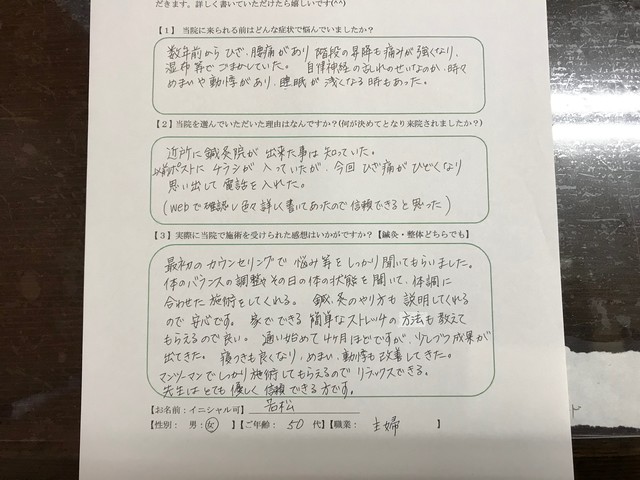 だきます。詳しく書いていただけたら嬉しいです(^^)
【１】 当院に来られる前はどんな症状で悩んでいましたか？
数年前から ひざ、腰痛があり 階段の昇降も痛みが強くなり、
湿布等でごまかしていた。 自律神経の乱れのせいなのか、時々
めまいや動悸があり、睡眠が 浅くなる時もあった。
【２】当院を選んでいただいた理由はなんですか？(何が決めてとなり来院されましたか？)
近所に鍼灸院が 出来た事は 知っていた。
以前ポストに チラシが 入っていたが、今回 ひざ痛が ひどくなり
思い出して 電話を 入れた。
(webで確認し色々詳しく書いてあったので信頼できると思った)
【３】実際に当院で施術を受けられた感想はいかがですか？【鍼灸・整体どちらでも】
最初の カウンセリングで 悩み等を しっかり聞いてもらいました。
体のバランスの調整やその日の体の状態を聞いて、体調に
合わせた 施術をしてくれる。 鍼、灸のやり方も 説明してくれる
ので 安心です。 家でできる 簡単なストレッチの 方法も 教えて
もらえるので良い。 通い始めて 4ヶ月ほどですが、少しづつ成果が
出てきた。 寝つきも良くなり、めまい、動悸も 改善してきた。
マンツーマンで しっかり施術してもらえるので リラックスできる。
先生はとても 優しく 信頼できる方です。
【お名前：イニシャル可】 若松
【性別： 男：女 】【ご年齢： 50 代】【職業： 主婦 】